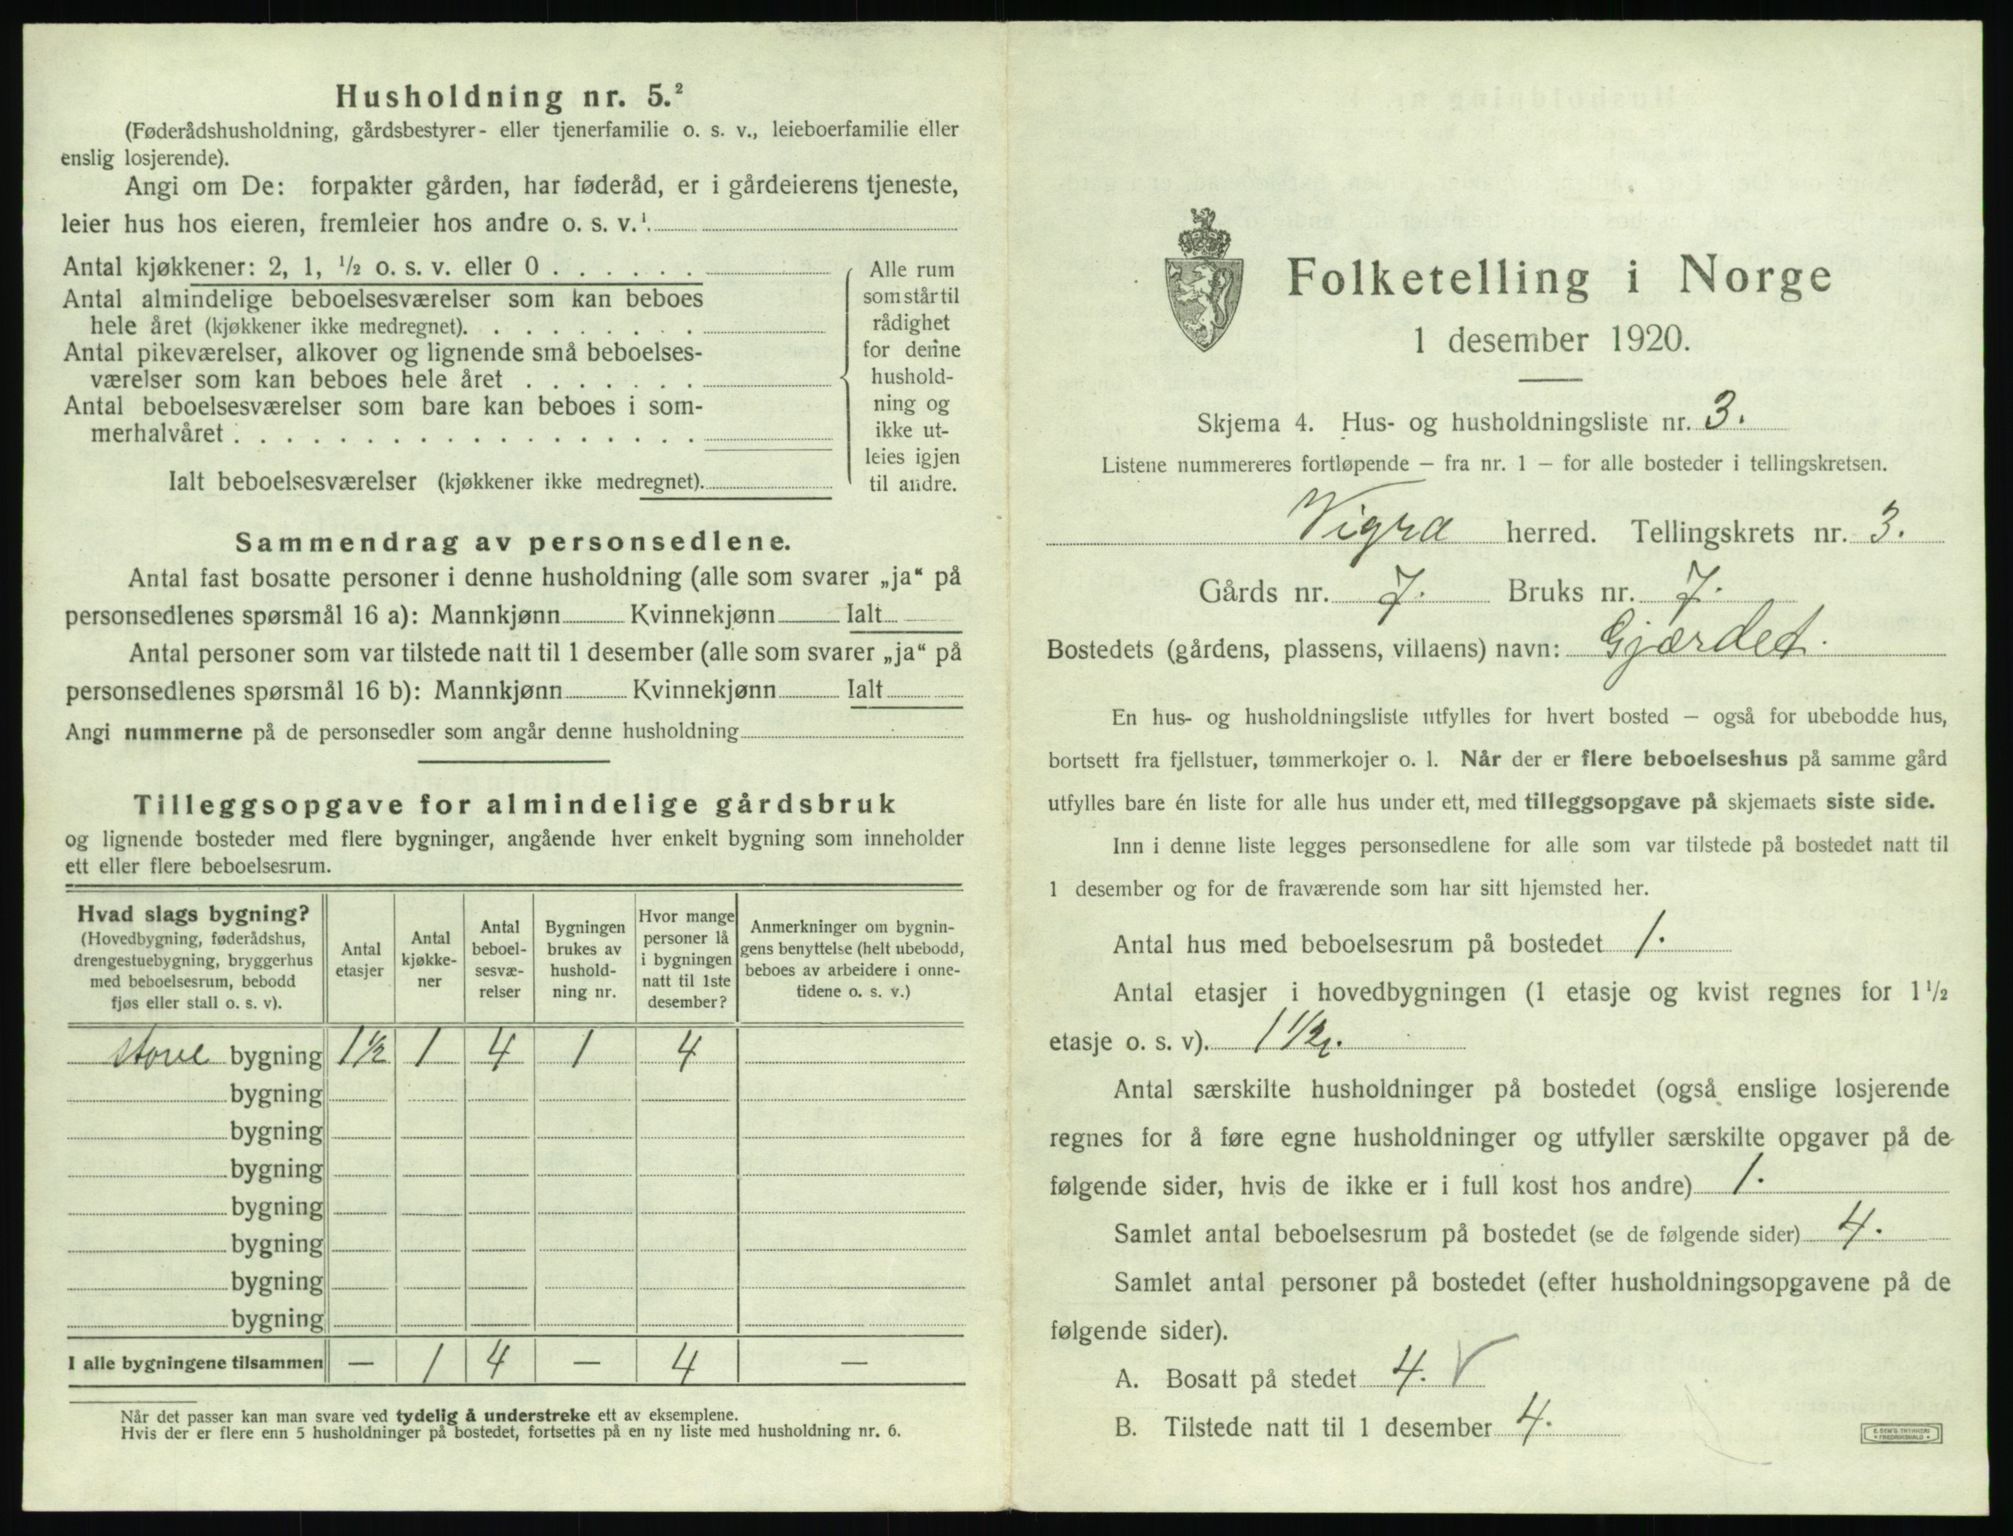 Husholdning nr. 5.²
(Føderådshusholdning, gårdsbestyrer- eller tjenerfamilie o. s. v., leieboerfamilie eller
enslig losjerende).
Angi om De: forpakter gården, har føderåd, er i gårdeierens tjeneste,
leier hus hos eieren, fremleier hos andre o. s. v.¹
Antal kjøkkener: 2, 1, ½ o. s. v. eller 0 . . . . . .
Antal almindelige beboelsesværelser som kan beboes
hele året (kjøkkener ikke medregnet). . . . . . . . .
Antal pikeværelser, alkover og lignende små beboelses-
værelser som kan beboes hele året . . . . . . .
Antal beboelsesværelser som bare kan beboes i som-
merhalvåret . . . . . . . . . . . . . . . . . .
Ialt beboelsesværelser (kjøkkener ikke medregnet).
Alle rum
som står til
rådighet
for denne
hushold-
ning og
ikke ut-
leies igjen
til andre.
Sammendrag av personsedlene.
Antal fast bosatte personer i denne husholdning (alle som svarer „ja“ på
personsedlenes spørsmål 16 a): Mannkjønn Kvinnekjønn Ialt
Antal personer som var tilstede natt til 1 desember (alle som svarer „ja“ på
personsedlenes spørsmål 16 b): Mannkjønn Kvinnekjønn Ialt
Angi nummerne på de personsedler som angår denne husholdning
Tilleggsopgave for almindelige gårdsbruk
og lignende bosteder med flere bygninger, angående hver enkelt bygning som inneholder
ett eller flere beboelsesrum.
Hvad slags bygning?
(Hovedbygning, føderådshus,
drengestuebygning, bryggerhus
med beboelsesrum, bebodd
fjøs eller stall o. s. v).
Antal
etasjer
Antal
kjøkke-
ner
Antal
beboel-
sesvæ-
relser
Bygningen
brukes av
hushold-
ning nr.
Hvor mange
personer lå
i bygningen
natt til 1ste
desember?
Anmerkninger om bygnin-
gens benyttelse (helt ubebodd,
beboes av arbeidere i onne-
tidene o. s. v.)
stove bygning 1½ 1 4 1 4
bygning
bygning
bygning
bygning
bygning
bygning
bygning
I alle bygningene tilsammen — 1 4 — 4 —
Når det passer kan man svare ved tydelig å understreke ett av eksemplene.
Hvis der er flere enn 5 husholdninger på bostedet, fortsettes på en ny liste med husholdning nr. 6.
Folketelling i Norge
1 desember 1920.
Skjema 4. Hus- og husholdningsliste nr. 3.
Listene nummereres fortløpende – fra nr. 1 – for alle bosteder i tellingskretsen.
Vigra herred. Tellingskrets nr. 3.
Gårds nr. 7. Bruks nr. 7.
Bostedets (gårdens, plassens, villaens) navn: Gjærdet.
En hus- og husholdningsliste utfylles for hvert bosted – også for ubebodde hus,
bortsett fra fjellstuer, tømmerkojer o. l. Når der er flere beboelseshus på samme gård
utfylles bare én liste for alle hus under ett, med tilleggsopgave på skjemaets siste side.
Inn i denne liste legges personsedlene for alle som var tilstede på bostedet natt til
1 desember og for de fraværende som har sitt hjemsted her.
Antal hus med beboelsesrum på bostedet 1.
Antal etasjer i hovedbygningen (1 etasje og kvist regnes for 1½
etasje o. s. v). 1½.
Antal særskilte husholdninger på bostedet (også enslige losjerende
regnes for å føre egne husholdninger og utfyller særskilte opgaver på de
følgende sider, hvis de ikke er i full kost hos andre) 1.
Samlet antal beboelsesrum på bostedet (se de følgende sider) 4.
Samlet antal personer på bostedet (efter husholdningsopgavene på de
følgende sider).
A. Bosatt på stedet 4. V
B. Tilstede natt til 1 desember 4.